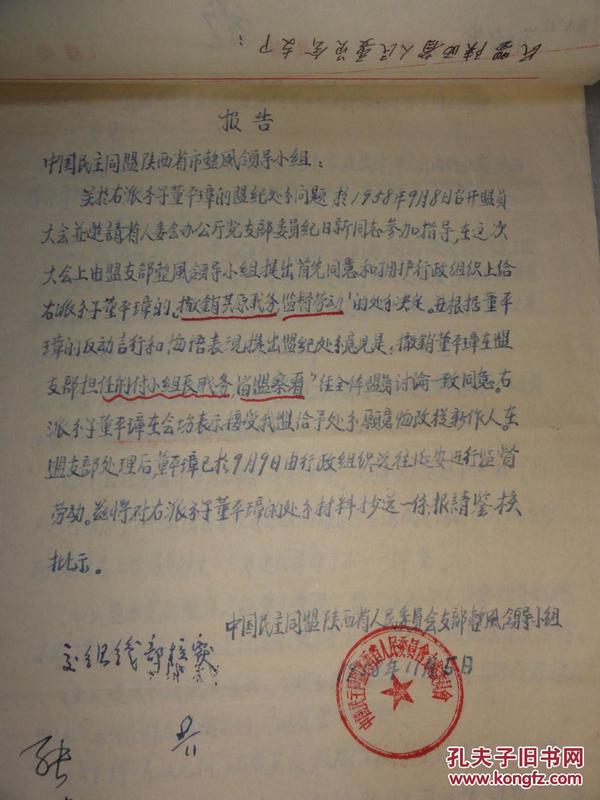 民盟陕西省人民委员会支下：
报告
中国民主同盟陕西省市整風領导小组：
关於右派分子董平璋的盟紀处分问題於1958年9月8日召开盟員
大会並邀請省人委会办公厅党支部委員紀日新同志参加指导，在这次
大会上由盟支部整風領导小组提出首先同意和拥护行政组织上给
右派分子董平璋的，撤銷其原职务，监督劳动"的处分决定。並根据董平
璋的反动言行和悔悟表现，提出盟紀处分意見是，撤銷董平璋在盟
支部担任的付小组長职务，留盟察看"径全体盟員讨論一致同意。右
派分子董平璋在会场表示接受我盟给予处分，願意悔改従新作人，在
盟支部处理后董平璋已於9月9日由行政组织送往延安进行监督
劳动。兹将对右派分子董平璋的处分材料抄送一份，报請鉴核
批示。
中国民主同盟陕西省人民委員会支部整風領导小组
58年11月5日
交组織部核
孔夫子旧书网
www.kongfz.com